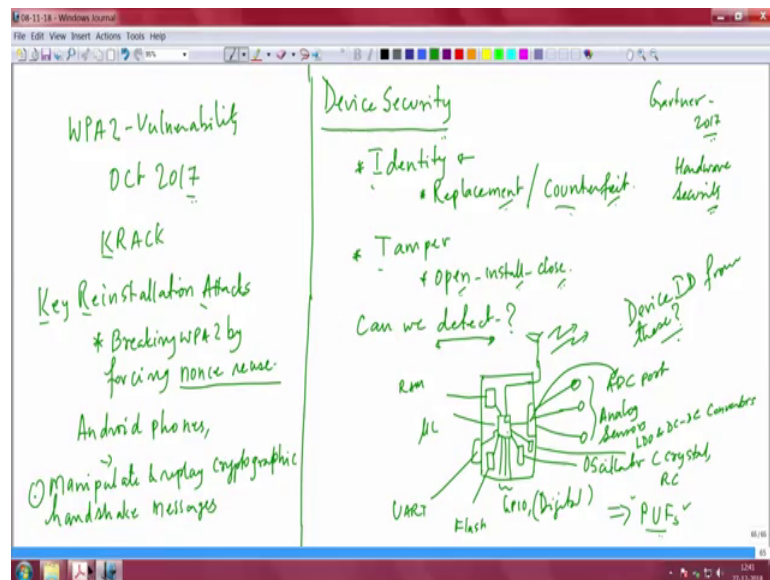 08-11-18 - Windows Journal
File Edit View Insert Actions Tools Help
WPA2-Vulnerability
Oct 2017
KRACK
Key Reinstallation Attacks
* Breaking WPA2 by
forcing nonce reuse.
Android phones,
Manipulate & replay cryptographic
handshake messages
Device Security
* Identity
* Replacement / Counterfeit.
* Tamper
* open-install-close.
Can we detect-?
Gartner-
2017
Hardware
Security
Device ID from
these?
RAM
µC
UART
Flash
GPIO, (Digital)
ADC port
Analog
Sensors
LDO & DC-DC Converters
Oscillator ( crystal,
RC
⇒ PUFs
65/65
65
12:41
22-11-2018